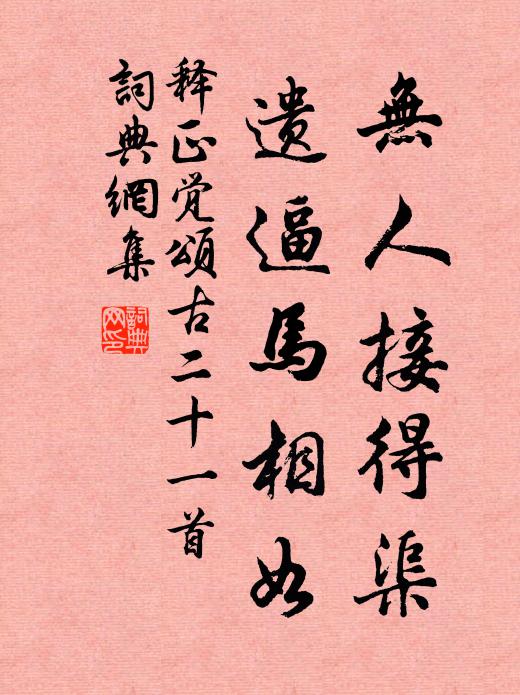 無人接得渠
遗逼馬相如
释正覚頌古二十一首
詞典網集
詞典网印